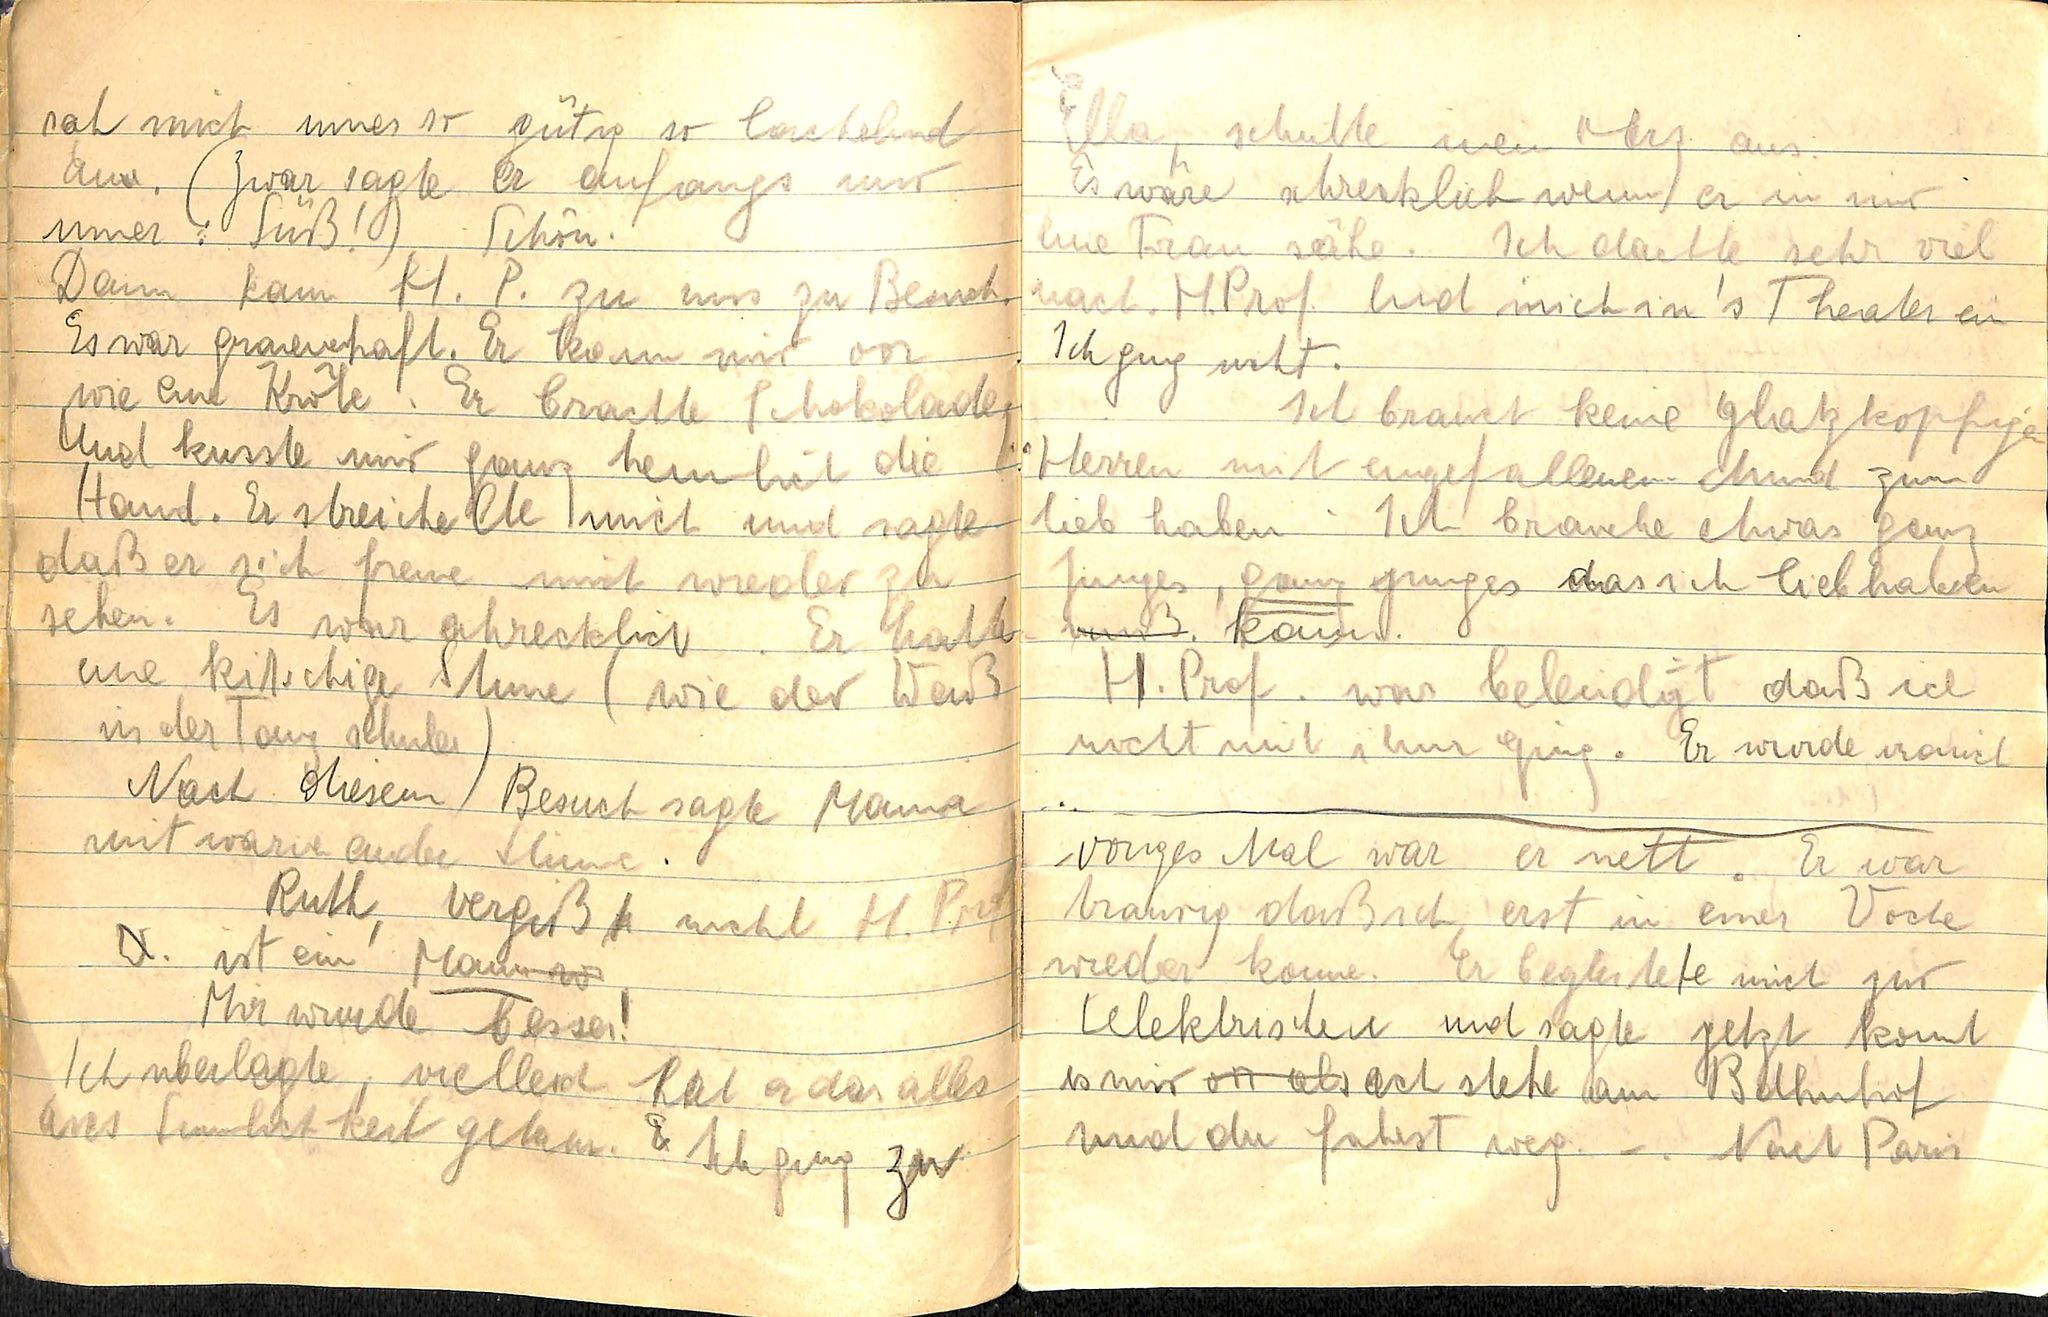 sah mich imer so gütig so lachelnd
an. (Zwar sagte er anfangs nur
imer : Süß!) Schön.
Dann kam H. P. zu uns zu Besuch.
Es war grauenhaft. Er kam mir vor
wie eine Kröte. Er brachte Schokolade,
Und kusste mir ganz heimlich die
Hand. Er streichelte mich und sagte
daß er sich freue mich wieder zu
sehen. Es war schrecklich. Er hatte
eine kitschige Stime (wie der Weiß
in der Tanz schule)
Nach diesem Besuch sagte Mama
mit warnender Stime.
Ruth, vergiß nicht H. Prof
X. ist ein Mann
Mir wurde besser!
Ich uberlegte, vielleicht hat er das alles
aus Sinnlichkeit getan. Ich ging zu
Ella, schutte mein Herz aus.
Es wäre schrecklich wenn er in mir
eine Frau sähe. Ich dachte sehr viel
nach. H. Prof. lud mich in's Theater ein
Ich ging nicht.
Ich brauch keine glatzkopfigen
Herren mit eingefallenem Mund zum
lieb haben. Ich brauche etwas ganz
junges, ganz junges das ich liebhaben
muß. kann.
H. Prof. war beleidigt daß ich
nicht mit ihm ging. Er wurde ironisch
...
voriges Mal war er nett. Er war
traurig daß ich erst in einer Woche
wieder kome. Er begleitete mich zur
Elektrischen und sagte jetzt komt
es mir vor als ich stehe am Bahnhof
und du fahrst weg. –. Nach Paris